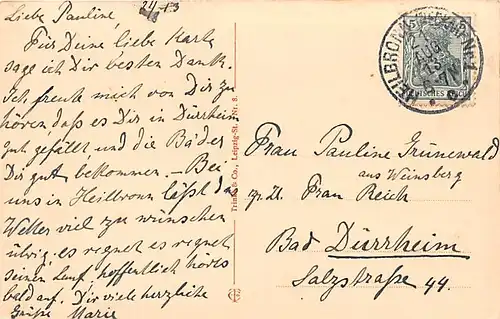 Liebe Pauline,
Für Deine liebe Karte
sage ich Dir besten Dank.
Ich freute mich von Dir zu
hören daß es Dir in Dürrheim
gut gefällt und die Bäder
Dir gut bekommen. – Bei
uns in Heilbronn läßt das
Wetter viel zu wünschen
übrig. es regnet es regnet
seinen Lauf, hoffentlich hörts
bald auf. Dir viele herzliche
Grüße Marie
Trinks & Co., Leipzig-St. Nr. 8.
HEILBRONN
AUG
13
DEUTSCHES REICH
Frau Pauline Grünewald
aus Weinsberg
zr. Zt. Frau Reich
Bad Dürrheim
Salzstraße 44.